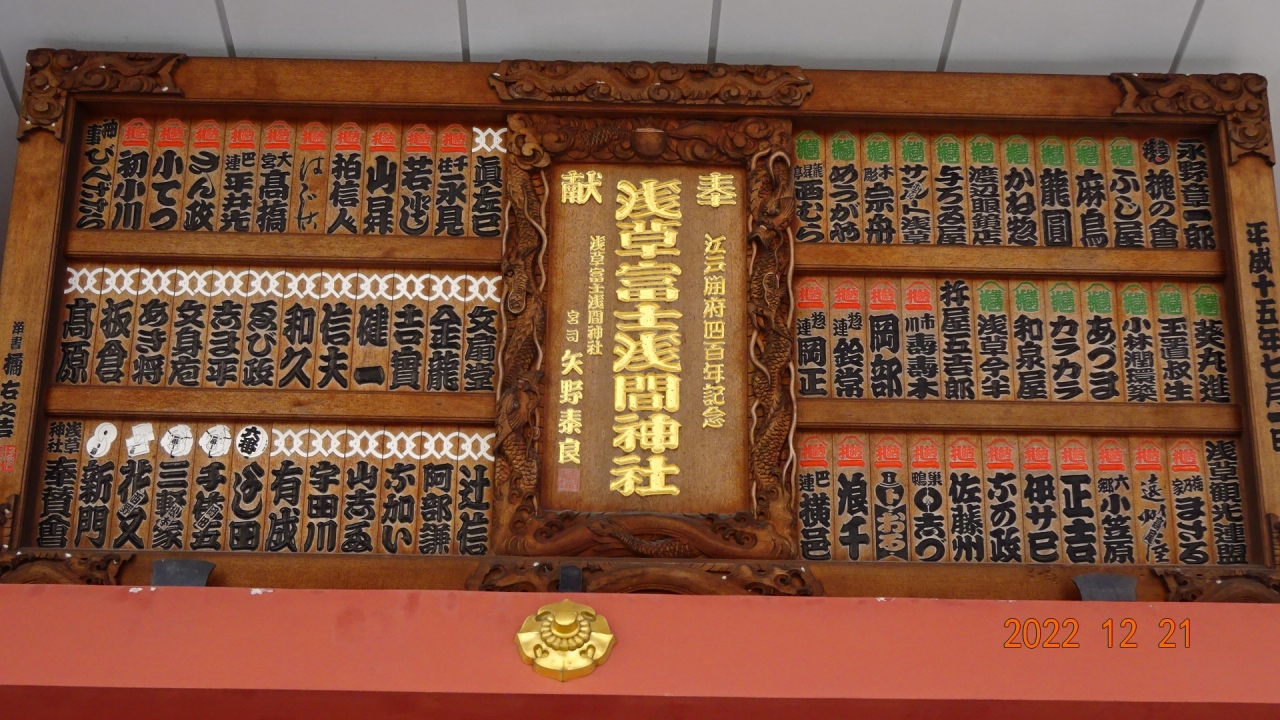 平成十五年七月一日
永野章一郎
桃の會
ふじ屋
麻鳥
龍圓
かね惣
与ろゐ屋
木彫 宗舟
めうがや
西むら
葵丸進
玉置敏生
小林潤製薬
あづま
カラカラ
和泉屋
浅草今半
杵屋五吉郎
市川 壽壽木
岡部
惣連 鈴常
惣連 岡正
浅草観光連盟
まさる
六郷 小笠原
正吉
伊サ巳
六の政
佐藤州
浪千
巴連 横邑
奉献
江戸開府四百年記念
浅草富士浅間神社
浅草富士浅間神社
宮司 矢野泰良
眞左巳
永見
若よし
山昇
柏信人
大宮 髙橋
巴連 平井光
さん政
小てつ
初小川
神事 びんざさら
文扇堂
金龍
吉實
健一
信夫
和久
ゑび政
吉ヨ平
文身庖
あき将
板倉
髙原
辻信
阿部謙
六加い
山吉ゐ
宇田川
有成
六番 よし田
手植五
三軒家
花又
新門
浅草神社 奉賛會
2022 12 21